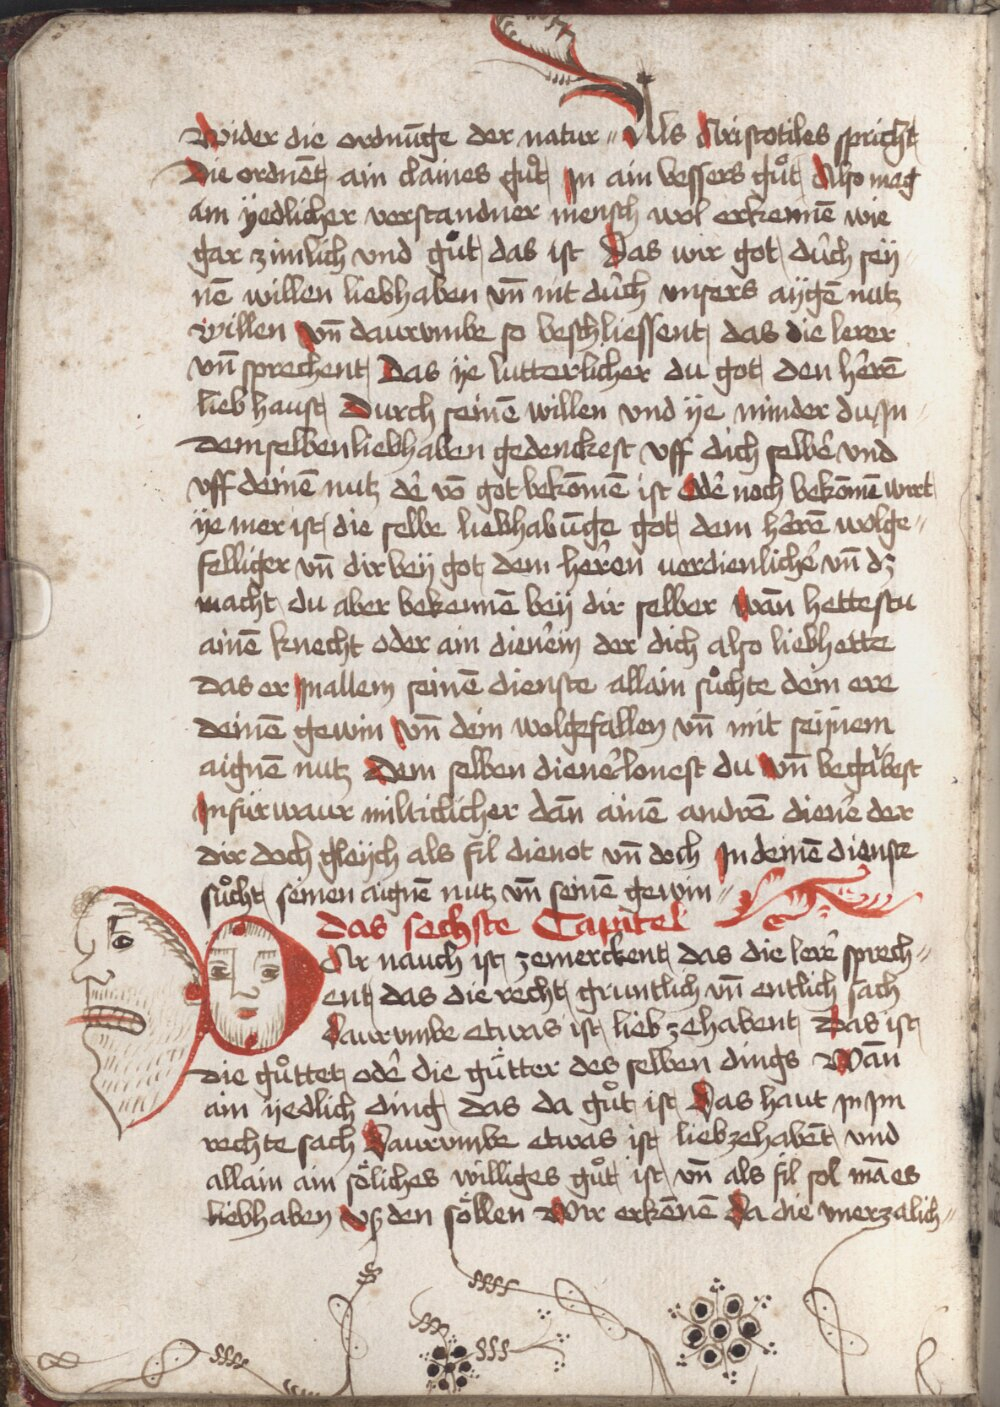 Wider die ordnūge der natur // Als Aristotiles spricht
Die ordnēt ain claines guͦt In ain bessers guͦt Also mag
ain ÿedlicher verstandner mensch wol erkennē wie
gar zimlich vnd guͦt das ist Das wir got duͤch sey-
nē willen liebhaben vn̄ nit duͤch vnsers aÿgē nutz
willen vn̄ daurvmbe so beschliessent das die lerer
vn̄ sprechent Das ÿe lutterlicher du got den hērē
lieb haust Durch seinē willen vnd ÿe minder du In-
demselben liebhaben gedenckest vff dich selbē vnd
vff deinē nutz dē vō got bekōmē ist odē noch bekōmē wirt
ÿe mer ist die selbe liebhabūge got dem hērē wolge-
felliger vn̄ dir beÿ got dem hēren verdienlichē vn̄ dz
macht du aber bekennē beÿ dir selber wān hettestu
ainē knecht oder ain dienērin der dich also liebhette
das er In allem seinē dienste allain suͦchte dein ere
deinē gewin vn̄ dein wolgefallen vn̄ nit seÿnem
aignē nutz Dem selben dienē lonest du vn̄ begabest
In fürwaur milticlicher dān ainē andrē dienē der
dir doch gleÿch als fil dienot vn̄ doch In deinē dienste
suͦcht seinen aignē nutz vn̄ seinē gewin //
das sechste Capitel
DAr nauch ist zemerckent das die lerē sprech-
ent das die recht gruntlich vn̄ entlich sach
Daurvmbe etwas ist lieb zehabent Das ist
die guͦttet odē die guͤtter des selben dings Wān
ain ÿedlich ding das da guͦt ist Das haut In Im
rechte sach Daurvmbe etwas ist liebzehabēt vnd
allain ain söliches williges guͦt ist vn̄ als fil sol mā es
liebhaben vß den söllen Wir erkēnē Da die vnerzalich-